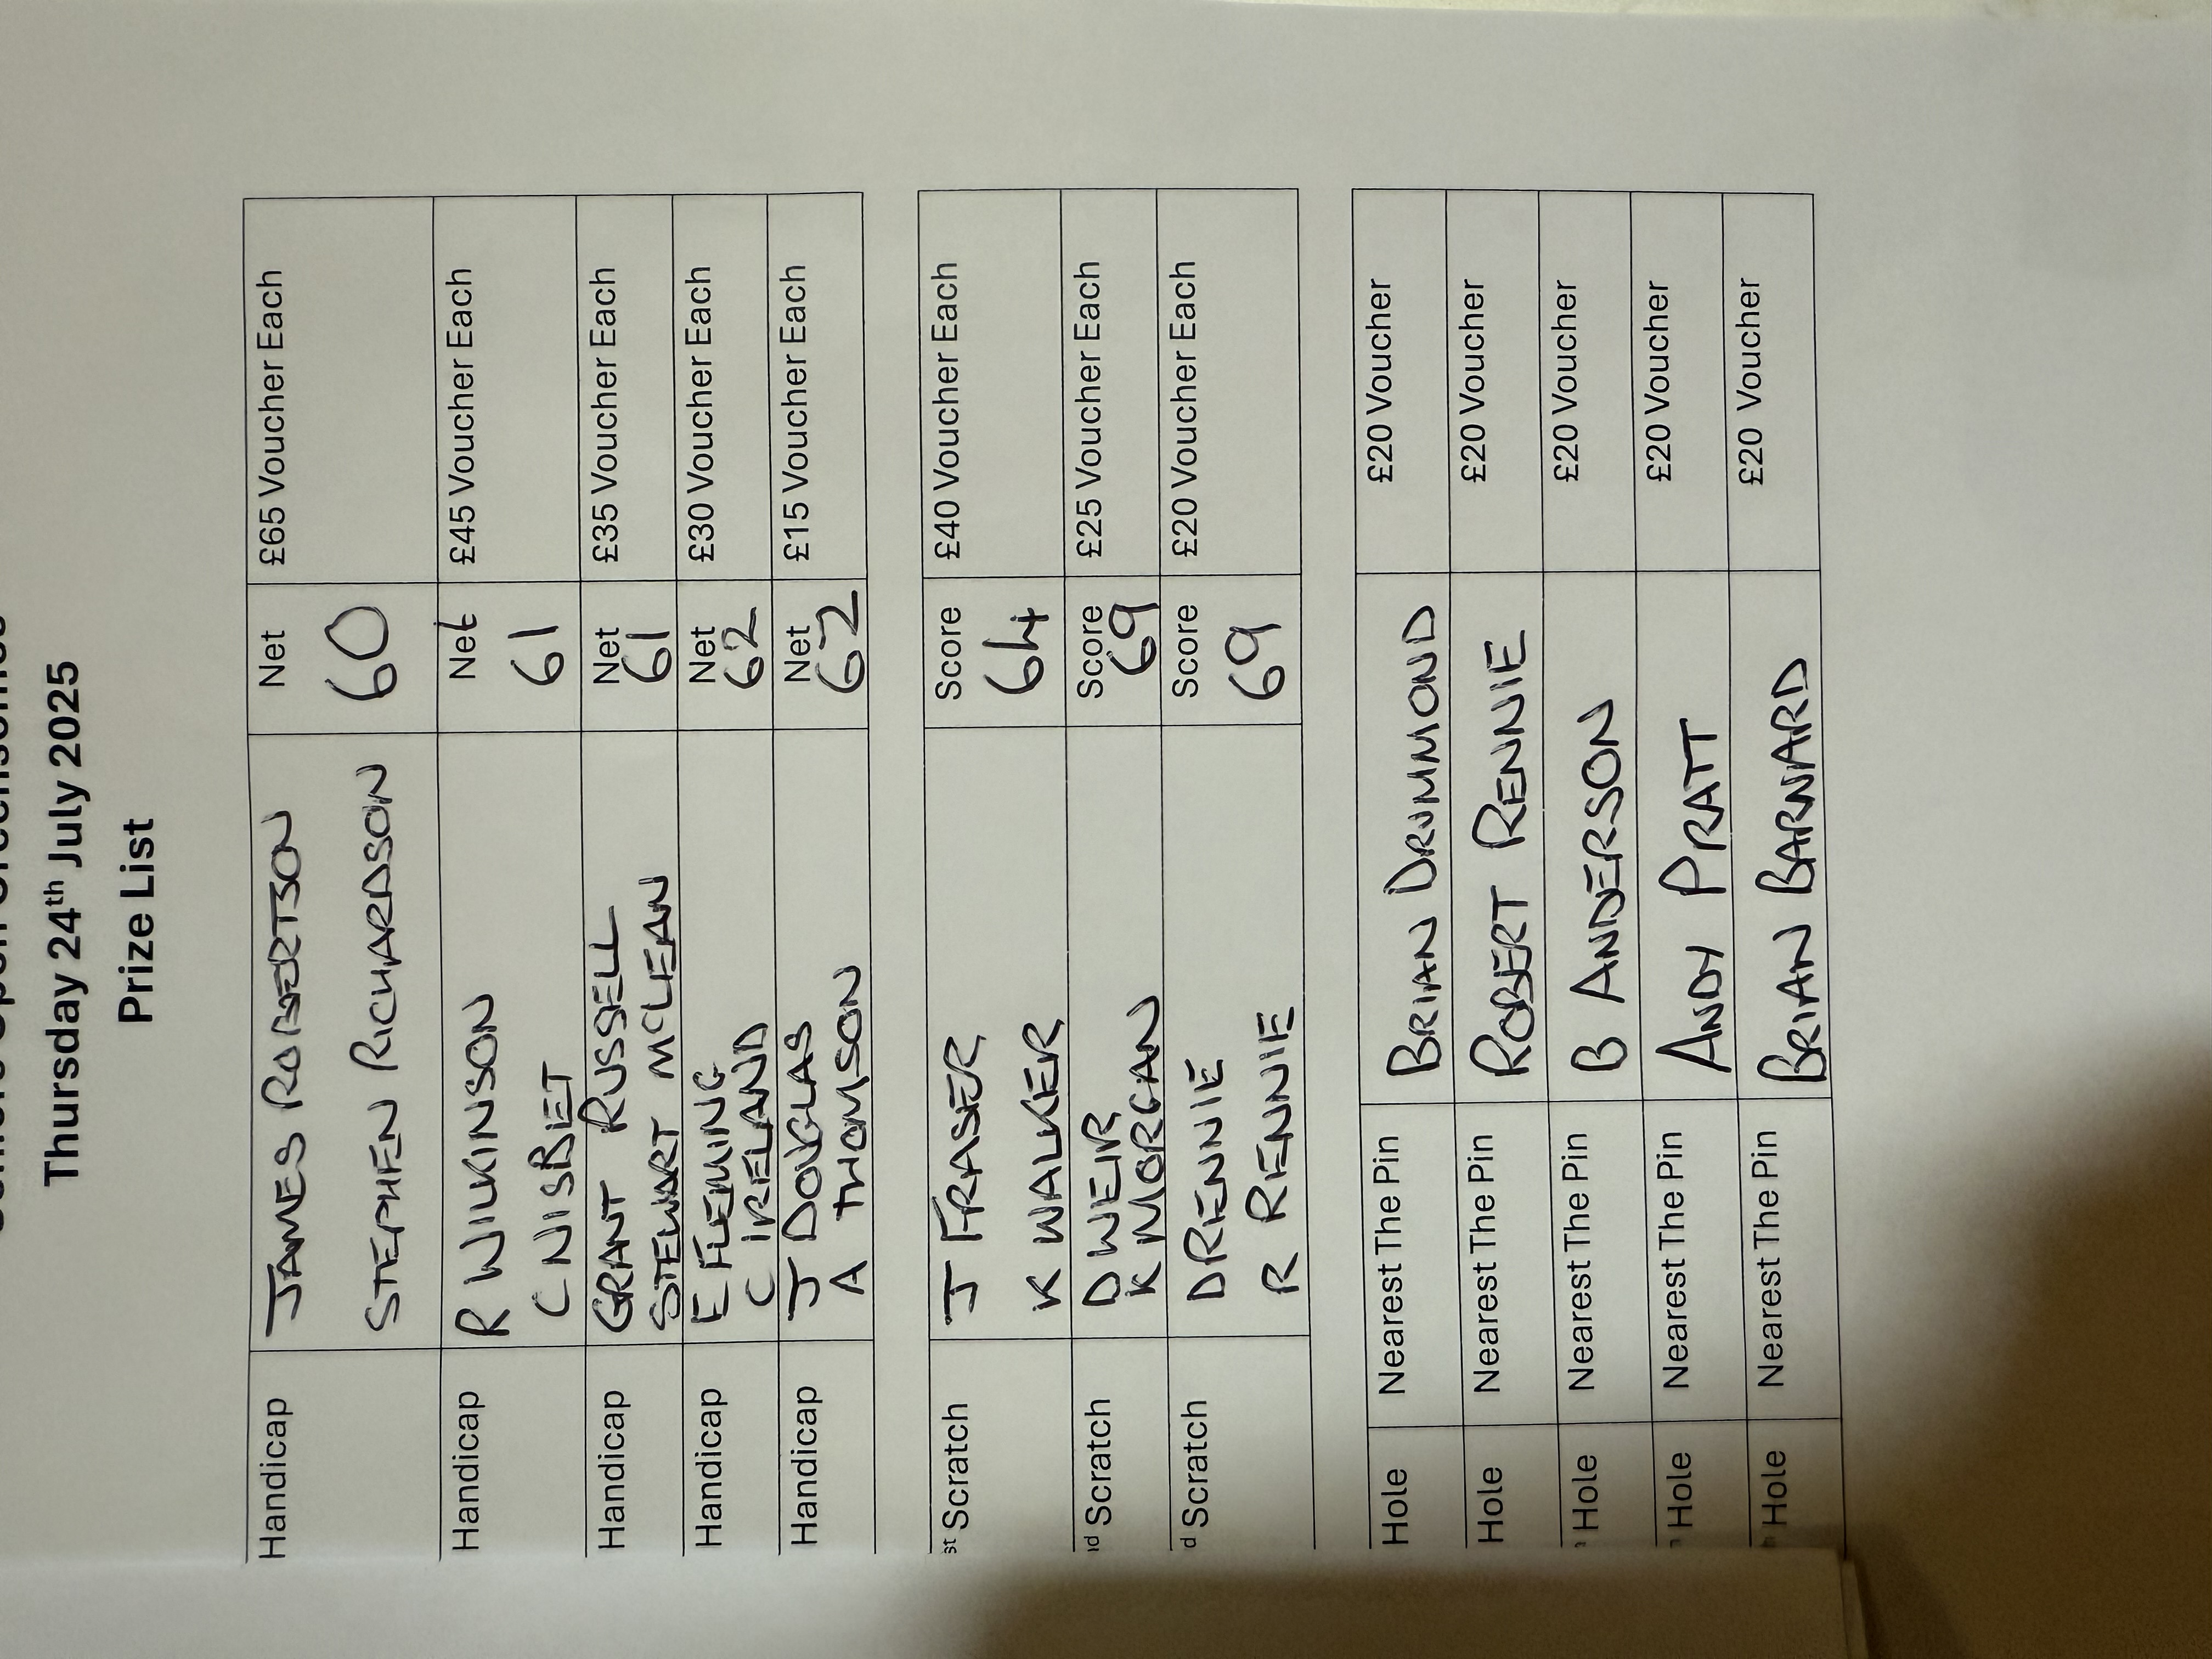 Thursday 24th July 2025
Prize List
Handicap JAMES ROBERTSON Net £65 Voucher Each
STEPHEN RICHARDSON 60
Handicap R WILKINSON Net £45 Voucher Each
C NISBET 61
Handicap GRANT RUSSELL Net £35 Voucher Each
STEWART McLEAN 61
Handicap E FLEMING Net £30 Voucher Each
C IRELAND 62
Handicap J DOUGLAS Net £15 Voucher Each
A THOMSON 62
st Scratch J FRASER Score £40 Voucher Each
K WALKER 64
nd Scratch D WEIR Score £25 Voucher Each
K MORGAN 69
d Scratch D RENNIE Score £20 Voucher Each
R RENNIE 69
Hole Nearest The Pin BRIAN DRUMMOND £20 Voucher
Hole Nearest The Pin ROBERT RENNIE £20 Voucher
Hole Nearest The Pin B ANDERSON £20 Voucher
Hole Nearest The Pin ANDY PRATT £20 Voucher
Hole Nearest The Pin BRIAN BARNARD £20 Voucher